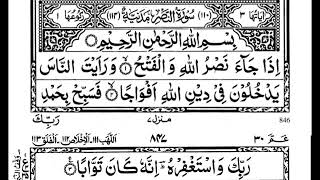 اٰيَاتُهَا ٣ (١١٠) سُوْرَةُ النَّصْرِ مَدَنِيَّةٌ (١١٤) رُكُوْعُهَا ١
بِسْمِ اللّٰهِ الرَّحْمٰنِ الرَّحِيْمِ
اِذَا جَآءَ نَصْرُ اللّٰهِ وَ الْفَتْحُ ۙ وَ رَاَيْتَ النَّاسَ
يَدْخُلُوْنَ فِيْ دِيْنِ اللّٰهِ اَفْوَاجًا ۙ فَسَبِّحْ بِحَمْدِ
رَبِّكَ منزل ٧ 846
عَمَّ ٣٠ ٨٤٧ اللَّهَب ١١١ الْاِخْلَاص ١١٢ الْفَلَق ١١٣
رَبِّكَ وَ اسْتَغْفِرْهُ ؕ اِنَّهٗ كَانَ تَوَّابًا ۧ